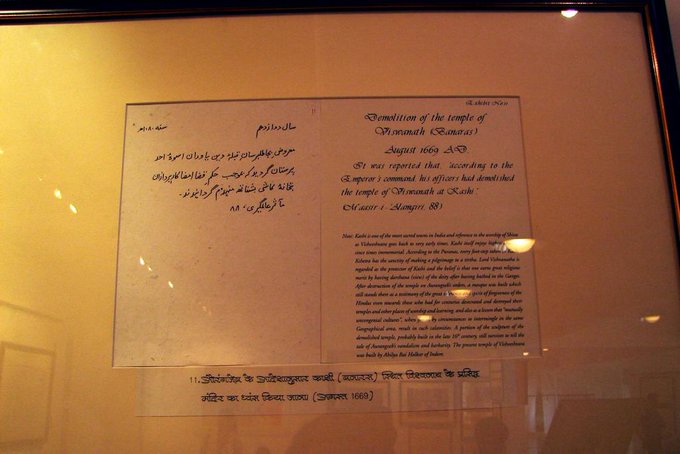 سال دوازدهم سنه ۱۰۸۰ه
معروض دین یاوران
پرستان گردید که بموجب حکم قضا امضا کارپردازان
بتخانهٔ کاشی منهدم گردانیدند
مآثر عالمگیری، ۸۸
Exhibit No. 11
Demolition of the temple of
Viswanath (Banaras)
August 1669 A.D.
It was reported that, "according to the
Emperor's command, his officers had demolished
the temple of Viswanath at Kashi".
(Maasir-i-Alamgiri, 88)
Note: Kashi is one of the most sacred towns in India and reference to the worship of Shiva
as Vishveshvara goes back to very early times. Kashi itself enjoys
since times immemorial. According to the Puranas, every foot-step taken in
Kshetra has the sanctity of making a pilgrimage to a tirtha. Lord Vishvanatha is
regarded as the protector of Kashi and the belief is that one earns great religious
merit by having darshana (view) of the deity after having bathed in the Ganges.
After destruction of the temple on Aurangzeb's orders, a mosque was built which
still stands there as a testimony of the great and spirit of forgiveness of the
Hindus even towards those who had for centuries desecrated and destroyed their
temples and other places of worship and learning, and also as a lesson that "mutually
uncongenial cultures", when by circumstances to intermingle in the same
Geographical area, result in such calamities. A portion of the sculpture of the
demolished temple, probably built in the late 16th century, still survives to tell the
tale of Aurangzeb's vandalism and barbarity. The present temple of Vishveshvara
was built by Ahilya Bai Holkar of Indore.
11. औरंगज़ेब के आदेशानुसार काशी (बनारस) स्थित विश्वनाथ के प्रसिद्ध
मंदिर का ध्वंस किया जाना (अगस्त 1669)